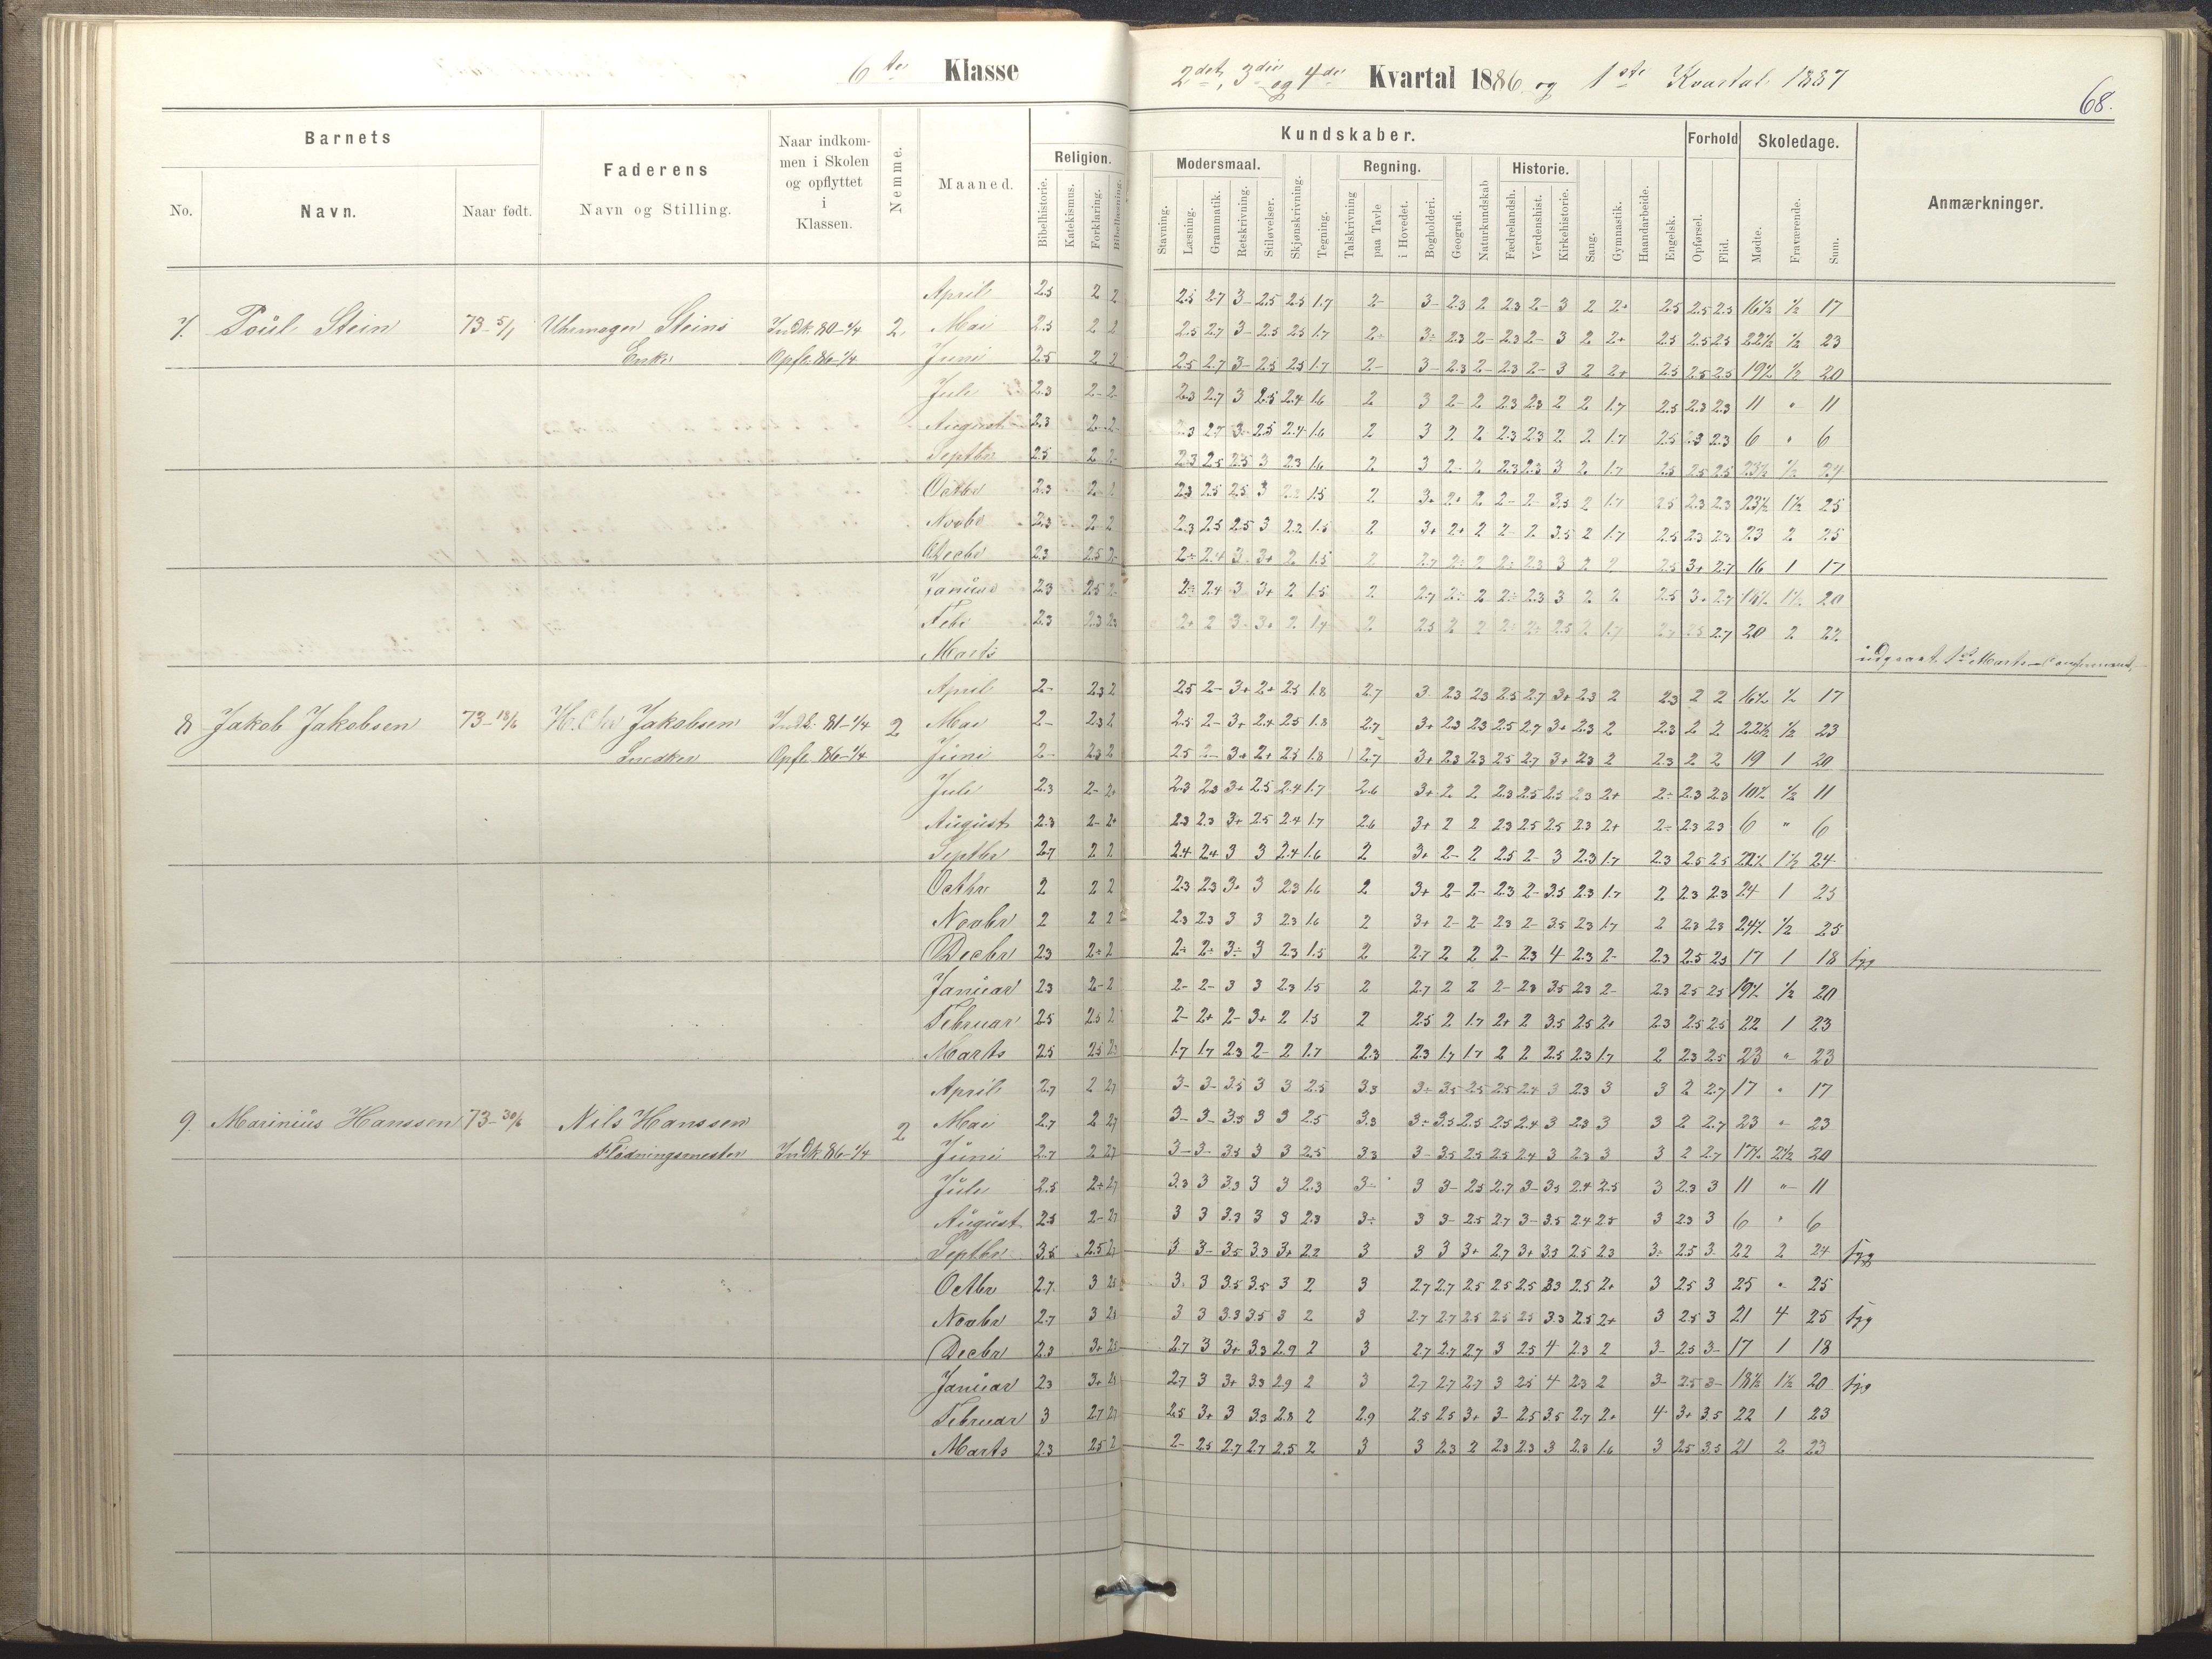 6te Klasse
2det, 3die og 4de Kvartal 1886 og 1ste Kvartal 1887
68.
Barnets
No.
Navn.
Naar født.
Faderens
Navn og Stilling.
Naar indkom-
men i Skolen
og opflyttet
i
Klassen.
Nemme.
Maaned.
Religion.
Bibelhistorie.
Katekismus.
Forklaring.
Bibellæsning.
Kundskaber.
Modersmaal.
Stavning.
Læsning.
Grammatik.
Retskrivning.
Stiløvelser.
Skjønskrivning.
Tegning.
Regning.
Talskrivning
paa Tavle
i Hovedet.
Bogholderi.
Geografi.
Naturkundskab
Historie.
Fædrelandsh.
Verdenshist.
Kirkehistorie.
Sang.
Gymnastik.
Haandarbeide.
Engelsk.
Forhold
Opførsel.
Flid.
Skoledage.
Mødte.
Fraværende.
Sum.
Anmærkninger.
April 2.5 2 2 2.5 2.7 3- 2.5 2.5 1.7 2- 3- 2.3 2 2.3 2- 3 2 2+ 2.5 2.5 2.5 16½ ½ 17
7. Poul Stein 73-5/1 Uhrmager Steins Indk. 80-1/4 2. Mai 2.5 2 2 2.5 2.7 3- 2.5 2.5 1.7 2- 3- 2.3 2- 2.3 2- 3 2 2+ 2.5 2.5 2.5 22½ ½ 23
Enke Opfl. 86-1/4 Juni 2.5 2 2 2.5 2.7 3- 2.5 2.5 1.7 2- 3- 2.3 2- 2.3 2- 3 2 2+ 2.5 2.5 2.5 19½ ½ 20
Juli 2.3 2- 2 2.3 2.7 3 2.5 2.4 1.6 2 3 2- 2 2.3 2.3 2 2 1.7 2.5 2.3 2.3 11 " 11
August 2.3 2- 2- 2.3 2.7 3- 2.5 2.4 1.6 2 3 2 2 2.3 2.3 2 2 1.7 2.5 2.3 2.3 6 " 6
Septbr 2.5 2 2- 2.3 2.5 2.5 3 2.3 1.6 2 3 2- 2 2.3 2.3 3 2 1.7 2.5 2.5 2.5 23½ ½ 24
Octbr 2.3 2 2 2.3 2.5 2.5 3 1.5 2 3+ 2+ 2 2- 2- 3.5 2 1.7 2.5 2.3 2.3 23½ 1½ 25
Novbr 2.3 2 2 2.3 2.5 2.5 3 2.2 1.5 2 3+ 2+ 2 2- 2 3.5 2 1.7 2.5 2.3 2.3 23 2 25
Decbr 2.3 2.5 2- 2÷ 2.4 3 3+ 2 1.5 2 2.7 2÷ 2 2÷ 2.3 3 2 2 2.5 3+ 2.7 16 1 17
Januar 2.3 2.5 2- 2÷ 2.4 3 3+ 2 1.5 2 2.7 2÷ 2 2÷ 2.3 3 2 2 2.5 3+ 2.7 18½ 1½ 20
Febr 2.3 2.3 2.3 2+ 2 3- 3+ 2 1.7 2 2.5 2 2 2÷ 2÷ 2.5 2 1.7 2.7 20 2 22
Marts
udgaaet 1ste Marts
April 2- 2.3 2 2.5 2- 3+ 2+ 2.5 1.8 2.7 3 2.3 2.3 2.5 2.7 3+ 2.3 2 2.3 2 2 16½ ½ 17
8 Jakob Jakobsen 73-18/6 Jakobsen Indk. 81-1/4 2 Mai 2- 2.3 2 2.5 2- 3+ 2.4 2.5 1.8 2.7 3+ 2.3 2.3 2.5 2.7 3+ 2.3 2 2.3 2 2 22½ ½ 23
Snedker Opfl. 86-1/4 Juni 2- 2.3 2 2.5 2- 3+ 2+ 2.5 1.8 2.7 3+ 2.3 2.3 2.5 2.7 3+ 2.3 2 2.3 2 2 19 1 20
Juli 2.3 2- 2+ 2.3 2.3 3+ 2.5 2.4 1.7 2.6 3+ 2 2 2.3 2.5 2.5 2.3 2+ 2÷ 2.3 2.3 10½ ½ 11
August 2.3 2- 2+ 2.3 2.3 3+ 2.5 2.4 1.7 2.6 3+ 2 2 2.3 2.5 2.5 2.3 2+ 2÷ 2.3 2.3 6 " 6
Septbr 2.7 2 2 2.4 2.4 3 3 2.4 1.6 2 3+ 2- 2 2.5 2- 3 2.3 1.7 2.3 2.5 2.5 22½ 1½ 24
Octbr 2 2 2 2.3 2.3 3+ 3 2.3 1.6 2 3+ 2- 2- 2.3 2- 3.5 2.3 1.7 2 2.3 2.3 24 1 25
Novbr 2 2 2 2.3 2.3 3 3 2.3 1.6 2 3+ 2- 2- 2.3 2- 3.5 2.3 1.7 2 2.3 2.3 24½ ½ 25
Decbr 2.3 2÷ 2 2÷ 2÷ 3÷ 3 2.3 1.5 2 2.7 2 2 2- 2.3 4 2.3 2- 2.3 2.5 2.5 17 1 18 syg
Januar 2.3 2- 2 2- 2- 3 3 2.3 1.5 2 2.7 2 2 2- 2.3 3.5 2.3 2- 2.3 2.5 2.5 19½ ½ 20
Februar 2.5 2.5 2 2- 2+ 2- 3+ 2 1.5 2 2.5 2 1.7 2+ 2 3.5 2.5 2+ 2.3 2.5 2.5 22 1 23
Marts 2.5 2.5 2.3 1.7 1.7 2.3 2- 2 1.7 2.3 2.3 1.7 1.7 2 2 2.5 2.3 1.7 2 2.3 2.5 23 " 23
April 2.7 2 2.7 3- 3- 3.5 3 3 2.5 3.3 3÷ 3.5 2.5 2.5 2.4 3 2.3 3 3 2 2.7 17 " 17
9. Marinius Hanssen 73-30/6 Nils Hanssen 2 Mai 2.7 2 2.7 3- 3- 3.5 3 3 2.5 3.3 3÷ 3.5 2.5 2.5 2.4 3 2.3 3 3 2 2.7 23 " 23
Flødningsmester Indk. 86-1/4 Juni 2.7 2 2.7 3- 3- 3.5 3 3 2.5 3.3 3- 3.5 2.5 2.5 2.4 3 2.3 3 3 2 2.7 17½ 2½ 20
Juli 2.5 2÷ 2.7 3.3 3 3.3 3 3 2.3 3÷ 3 3- 2.5 2.7 3- 3.5 2.4 2.5 3 2.3 3 11 " 11
August 2.5 2- 2.7 3 3 3.3 3 3 2.3 3÷ 3 3- 2.5 2.7 3- 3.5 2.4 2.5 3 2.3 3 6 " 6
Septbr 3.5 2.5 2.7 3 3- 3.5 3.3 3+ 2.2 3 3 3 3+ 2.7 3+ 3.5 2.5 2.3 3÷ 2.5 3 22 2 24 syg
Octbr 2.7 3 2.5 3 3 3.5 3.5 3 2 3 2.7 2.7 2.5 2.5 2.5 3.3 2.5 2+ 3 2.5 3 25 " 25
Novbr 2.7 3 2.5 3 3 3.3 3.5 3 2 3 2.7 2.7 2.5 2.5 2.5 3.3 2.5 2+ 3 2.5 3 21 4 25 syg
Decbr 2.3 3+ 2.5 2.7 3 3+ 3.3 2.9 2 3 2.7 2.7 2.7 3 2.5 4 2.3 2 3- 2.5 3- 17 1 18
Januar 2.3 3+ 2.5 2.7 3 3+ 3.3 2.9 2 3 2.7 2.7 2.7 3 2.5 4 2.3 2 3- 2.5 3- 18½ 1½ 20 syg
Februar 3 2.7 2.7 2.5 3+ 3 3.3 2.8 2 2.9 2.5 2.5 3+ 3- 2.5 3.5 2.7 2+ 4 3+ 3.5 22 1 23
Marts 2.3 2.5 2 2- 2.5 2.7 2.7 2.5 2 3 3 2.3 2 2.3 2.3 3 2.3 1.6 3 2.5 3.5 21 2 23